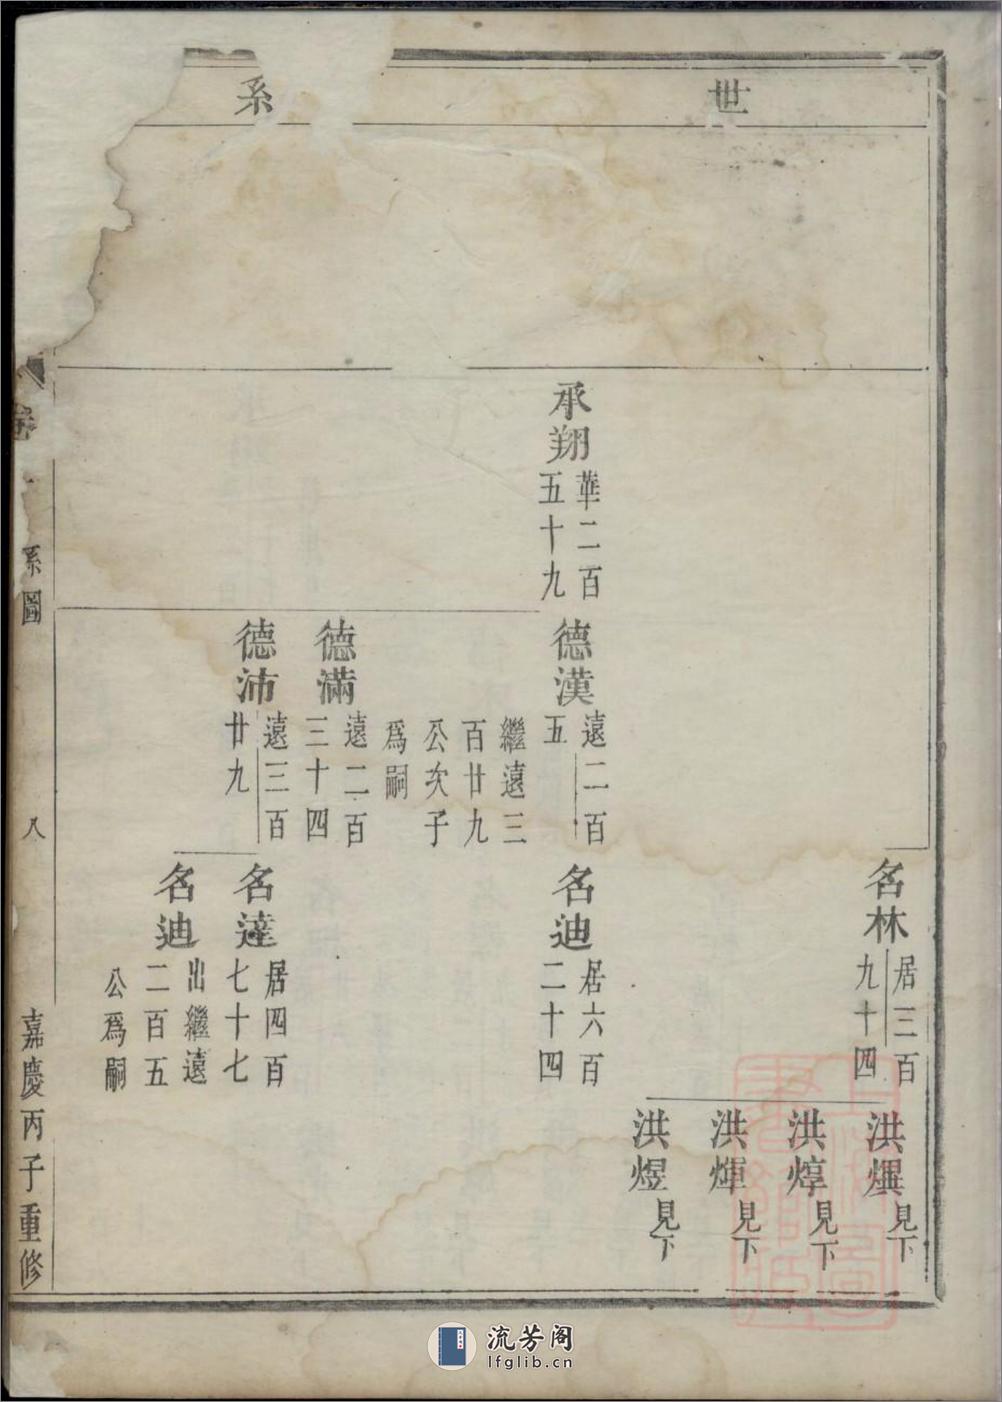 世系
承翔
華二百
五十九
德漢
遠二百
五
繼遠三
百廿九
公次子
爲嗣
德滿
遠二百
三十四
德沛
遠三百
廿九
名林
居三百
九十四
名迪
居六百
二十四
名達
居四百
七十七
名迪
出繼遠
二百五
公爲嗣
洪熼
見下
洪焞
見下
洪煇
見下
洪煜
見下
卷
系圖
八
嘉慶丙子重修
流芳阁
lfglib.cn